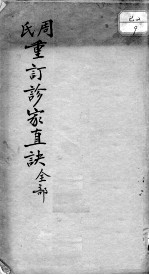 周氏重訂診家直訣全部
9